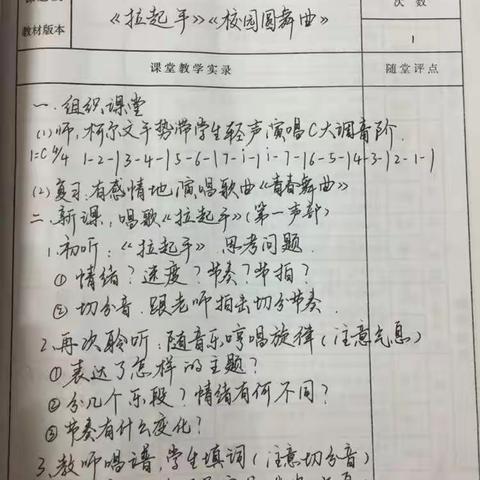 次 数
《拉起手》《校园圆舞曲》
教材版本
1
课堂教学实录
随堂评点
一.组织课堂
(1)师:柯尔文手势带学生轻声演唱C大调音阶.
1=C 4/4 1-2-|3-4-|5-6-|7-i-|i-7-|6-5-|4-3-|2-1-|
(2)复习:有感情地演唱歌曲《青春舞曲》
二.新课:唱歌《拉起手》(第一声部)
1.初听:《拉起手》思考问题.
①情绪?速度?节奏?节拍?
②切分音.跟老师拍击切分节奏.
2.再次聆听:随音乐哼唱旋律(注意气息)
①表达了怎样的主题?
②分几个乐段?情绪有何不同?
③节奏有什么变化?
3.教师唱谱,学生填词(注意切分音)